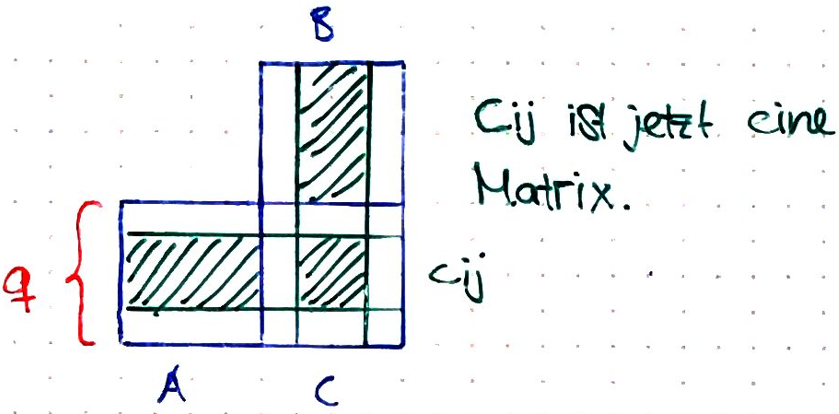 B
Cij ist jetzt eine
Matrix.
q
cij
A
C